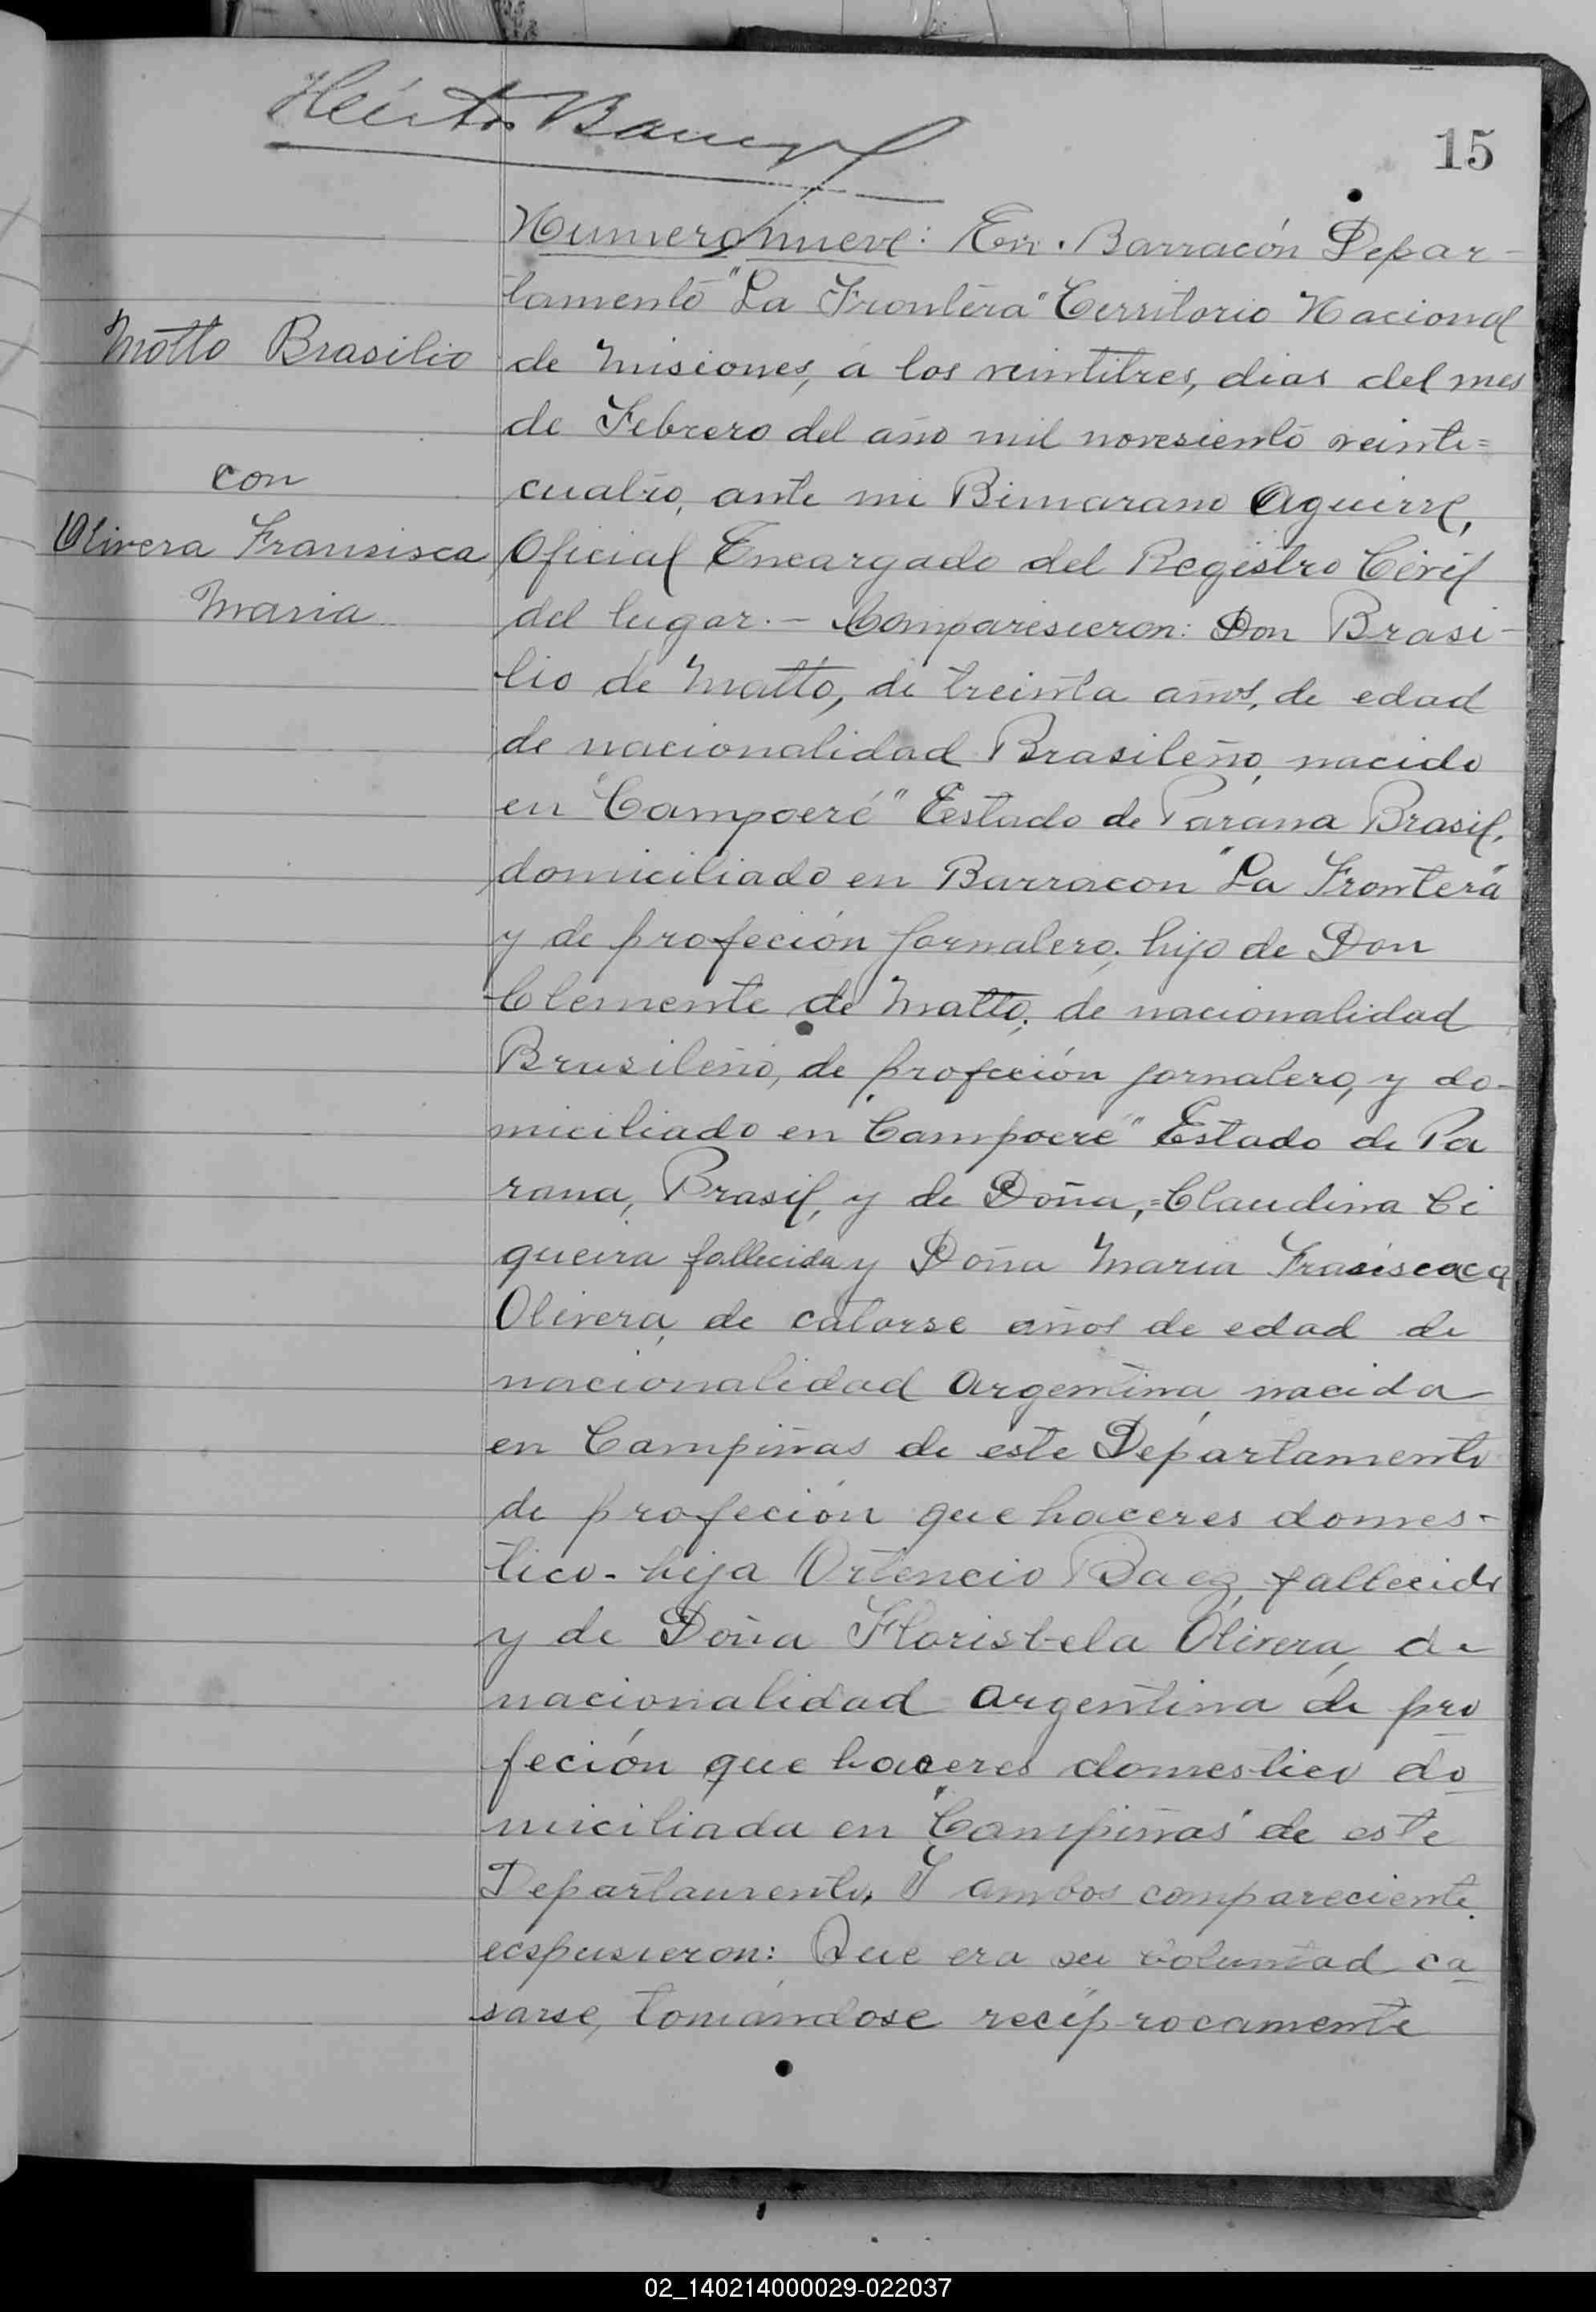 15
Numero nueve: En Barracón Depar-
tamento "La Frontera" Territorio Nacional
Motto Brasilio
de Misiones, á los veintitres, dias del mes
de Febrero del año mil novesiento veinti=
con
cuatro, ante mi Bimarano Aguirre,
Olivera Fransisca
Maria
Oficial Encargado del Registro Civil
del lugar.- Comparesieron: Don Brasi-
lio de Matto, de treinta años, de edad
de nacionalidad Brasileño, nacido
en "Campoeré" Estado de Parana Brasil,
domiciliado en Barracon "La Frontera"
y de profeción jornalero, hijo de Don
Clemente de Matto, de nacionalidad
Brasileño, de profeción jornalero, y do-
miciliado en "Campoere" Estado de Pa
rana, Brasil, y de Doña,=Claudina Ci
queira fallecida y Doña Maria
Olivera, de catorse años de edad de
nacionalidad Argentina, nacida
en Campinas de este Departamento
de profeción que haceres domes-
tico- hija Ortencio Baez, fallecido
y de Doña Florisbela Olivera, de
nacionalidad Argentina de pro
feción que haceres domestico do
miciliada en "Campinas" de este
Departamento, Y ambos compareciente
ecspusieron: Que era su voluntad ca
sarse, tomándose recíprocamente
02_140214000029-022037